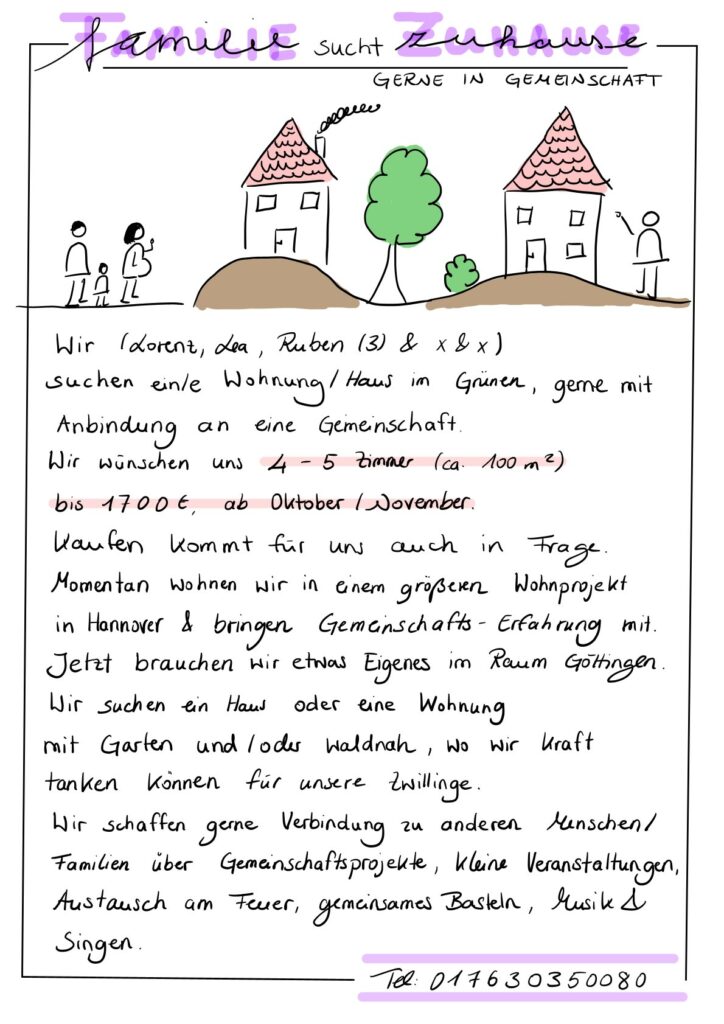 Familie sucht Zuhause
GERNE IN GEMEINSCHAFT
Wir (Lorenz, Lea, Ruben (3) & x & x)
suchen ein/e Wohnung/Haus im Grünen, gerne mit
Anbindung an eine Gemeinschaft.
Wir wünschen uns 4 - 5 Zimmer (ca. 100 m²)
bis 1700 €, ab Oktober/November.
Kaufen kommt für uns auch in Frage.
Momentan wohnen wir in einem größeren Wohnprojekt
in Hannover & bringen Gemeinschafts-Erfahrung mit.
Jetzt brauchen wir etwas Eigenes im Raum Göttingen.
Wir suchen ein Haus oder eine Wohnung
mit Garten und/oder waldnah, wo wir Kraft
tanken können für unsere Zwillinge.
Wir schaffen gerne Verbindung zu anderen Menschen/
Familien über Gemeinschaftsprojekte, kleine Veranstaltungen,
Austausch am Feuer, gemeinsames Basteln, Musik &
Singen.
Tel: 017630350080